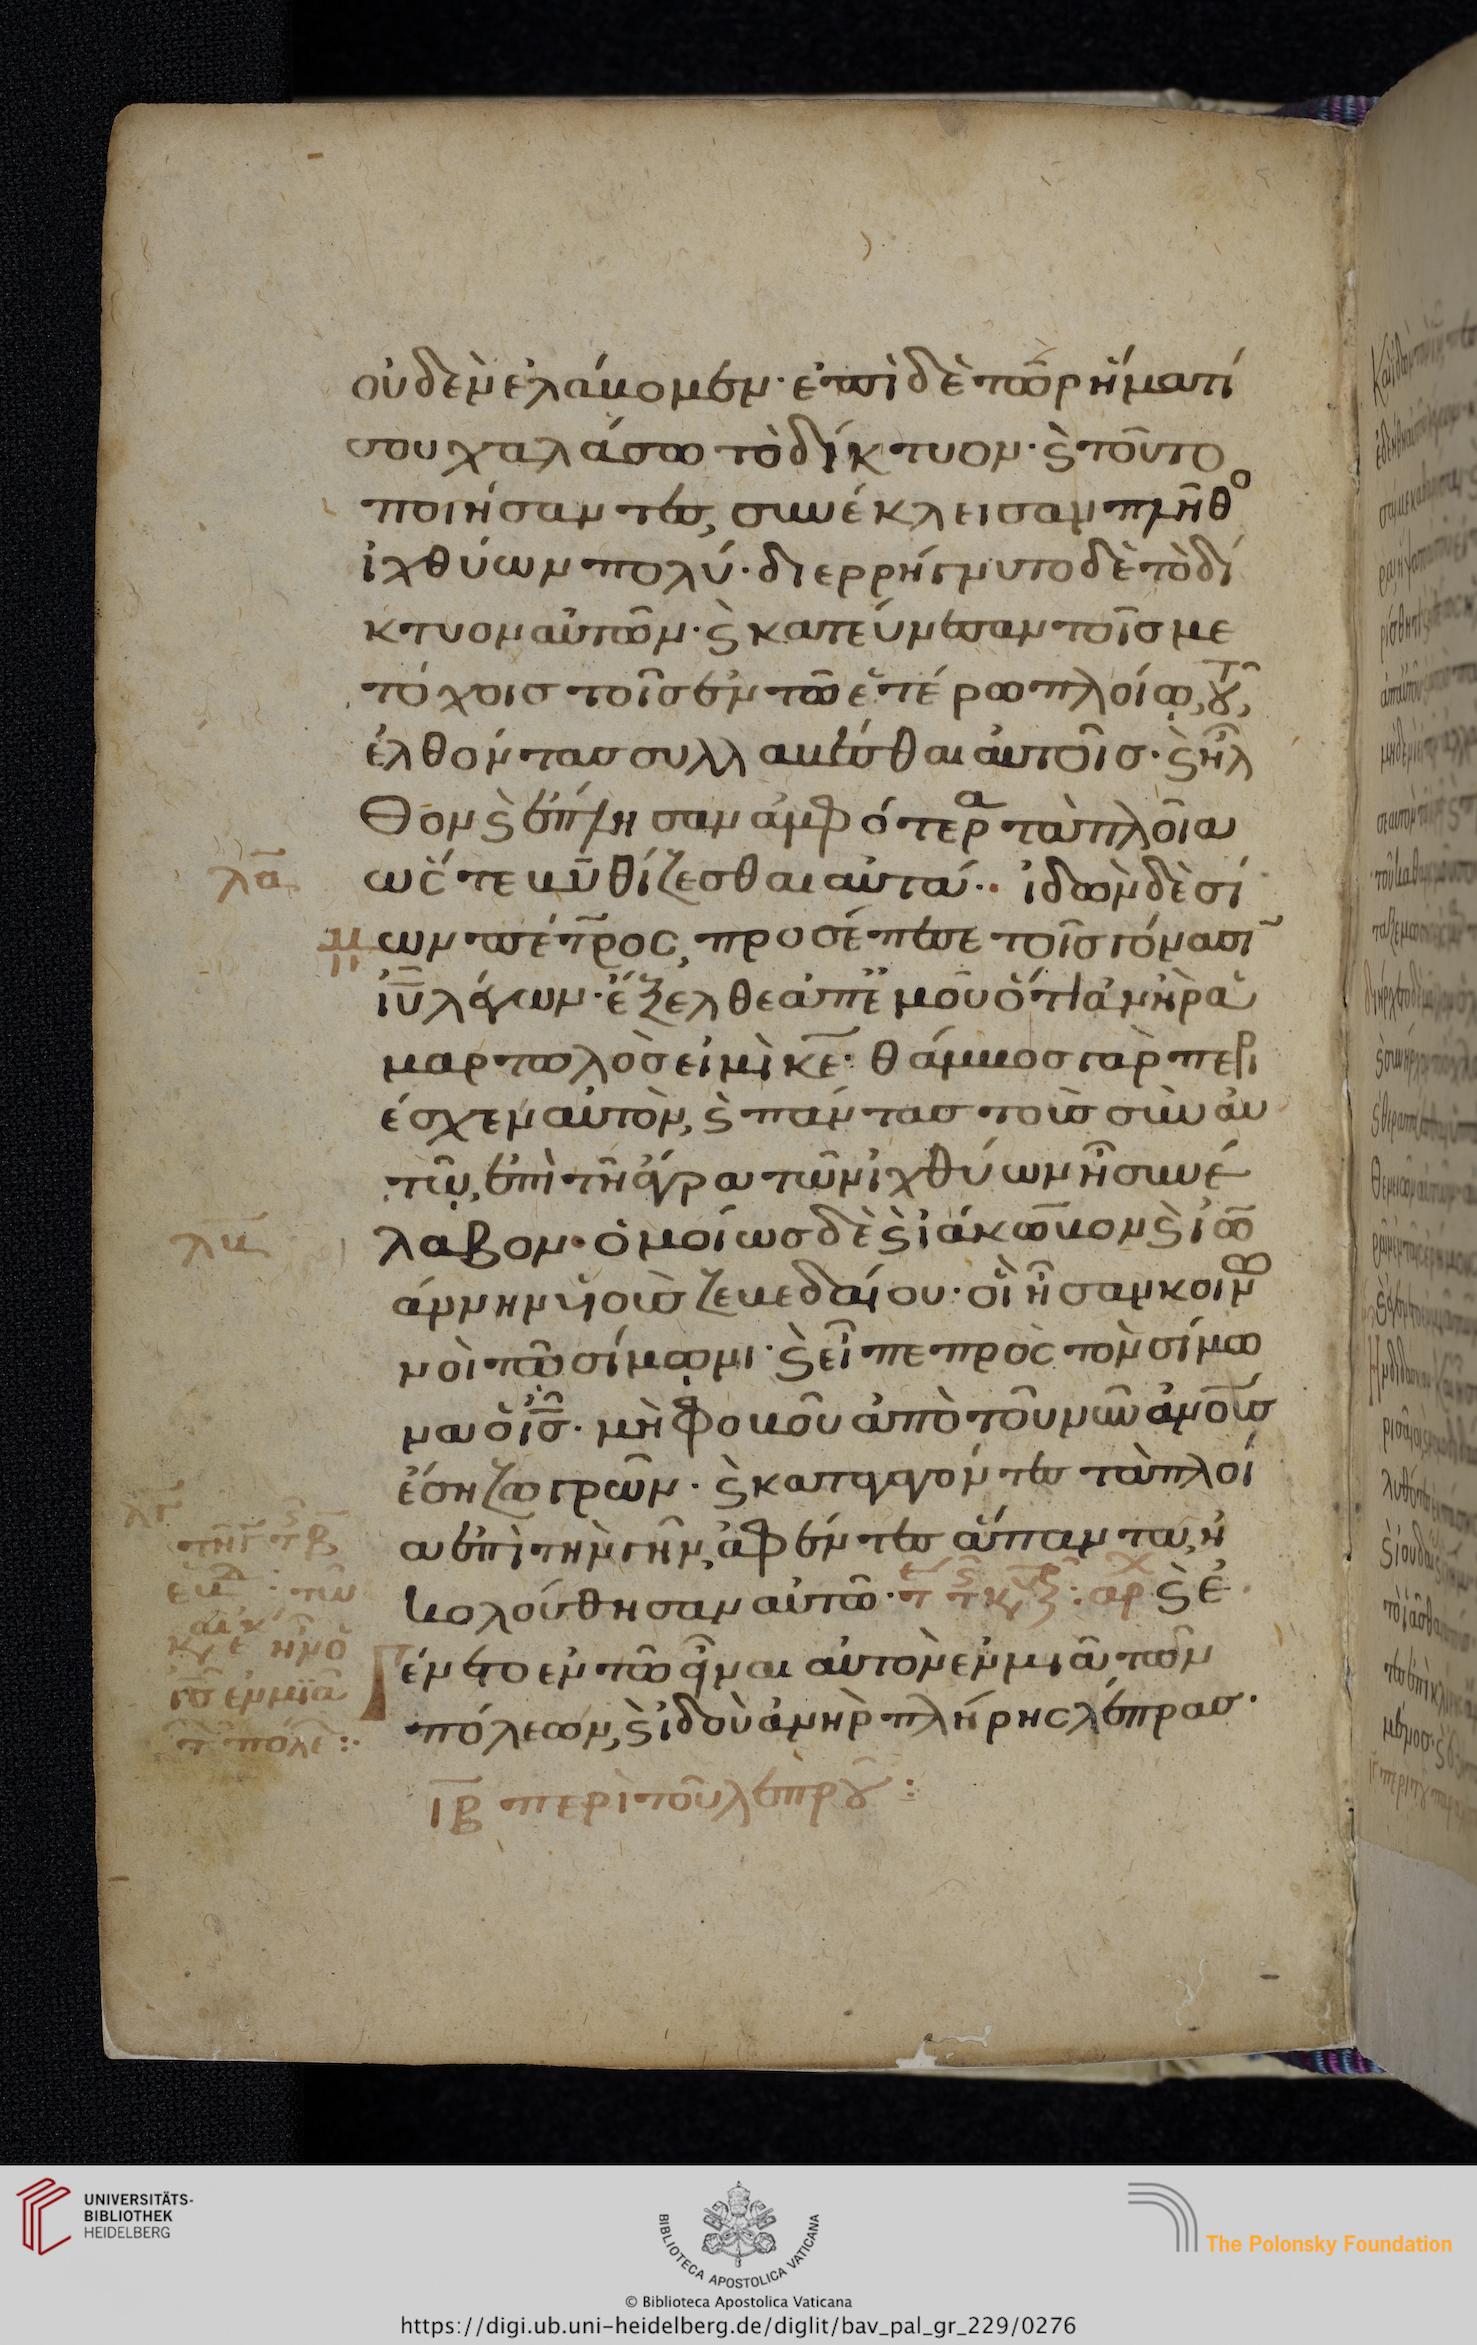 οὐδὲν ἐλάβομεν· ἐπὶ δὲ τῶ ῥήματί
σου χαλάσω τὸ δίκτυον· ϗ τοῦτο
ποιήσαντες, συνέκλεισαν πλῆθο
ἰχθύων πολύ· διερρήγνυτο δὲ τὸ δί
κτυον αὐτῶν· ϗ κατένευσαν τοῖς με
τόχοις τοῖς ἐν τῶ ἑτέρω πλοίω, τοῦ,
ἐλθόντας συλλαβέσθαι αὐτοῖς· ϗ ἦλ
θον ϗ ἔπλησαν ἀμφότερα τὰ πλοῖα
ὥστε βυθίζεσθαι αὐτά·· ἰδὼν δὲ σί
λα
μων πέτρος, προσέπεσε τοῖς γόνασι
ἰῦ λέγων· ἔξελθε ἀπ' ἐμοῦ ὅτι ἀνὴρ ἁ
μαρτωλός εἰμὶ κε· θάμβος γὰρ περι
έσχεν αὐτὸν, ϗ πάντας τοὺς σὺν αὐ
τῶ, ἐπὶ τῆ ἄγρα τῶν ἰχθύων ἧ συνέ
λαβον· ὁμοίως δὲ ϗ ἰάκωβον ϗ ἰω
λβ
άννην υἱοὺς ζεβεδαίου· οἳ ἦσαν κοινω
νοὶ τῶ σίμωνι· ϗ εἶπε πρὸς τὸν σίμω
να ὁ ἰς· μὴ φοβοῦ ἀπὸ τοῦ νῦν ἀνους
ἔση ζωγρῶν· ϗ καταγαγόντες τὰ πλοῖ
α ἐπὶ τὴν γῆν, ἀφέντες ἅπαντα, ἠ
κολούθησαν αὐτῶ· ϗ ἐ
γένετο ἐν τῶ εἶναι αὐτὸν ἐν μιᾶ τῶν
πόλεων, ϗ ἰδοὺ ἀνὴρ πλήρης λέπρας·
ιβ περὶ τοῦ λεπροῦ:
UNIVERSITÄTS-
BIBLIOTHEK
HEIDELBERG
BIBLIOTECA APOSTOLICA VATICANA
The Polonsky Foundation
© Biblioteca Apostolica Vaticana
https://digi.ub.uni-heidelberg.de/diglit/bav_pal_gr_229/0276